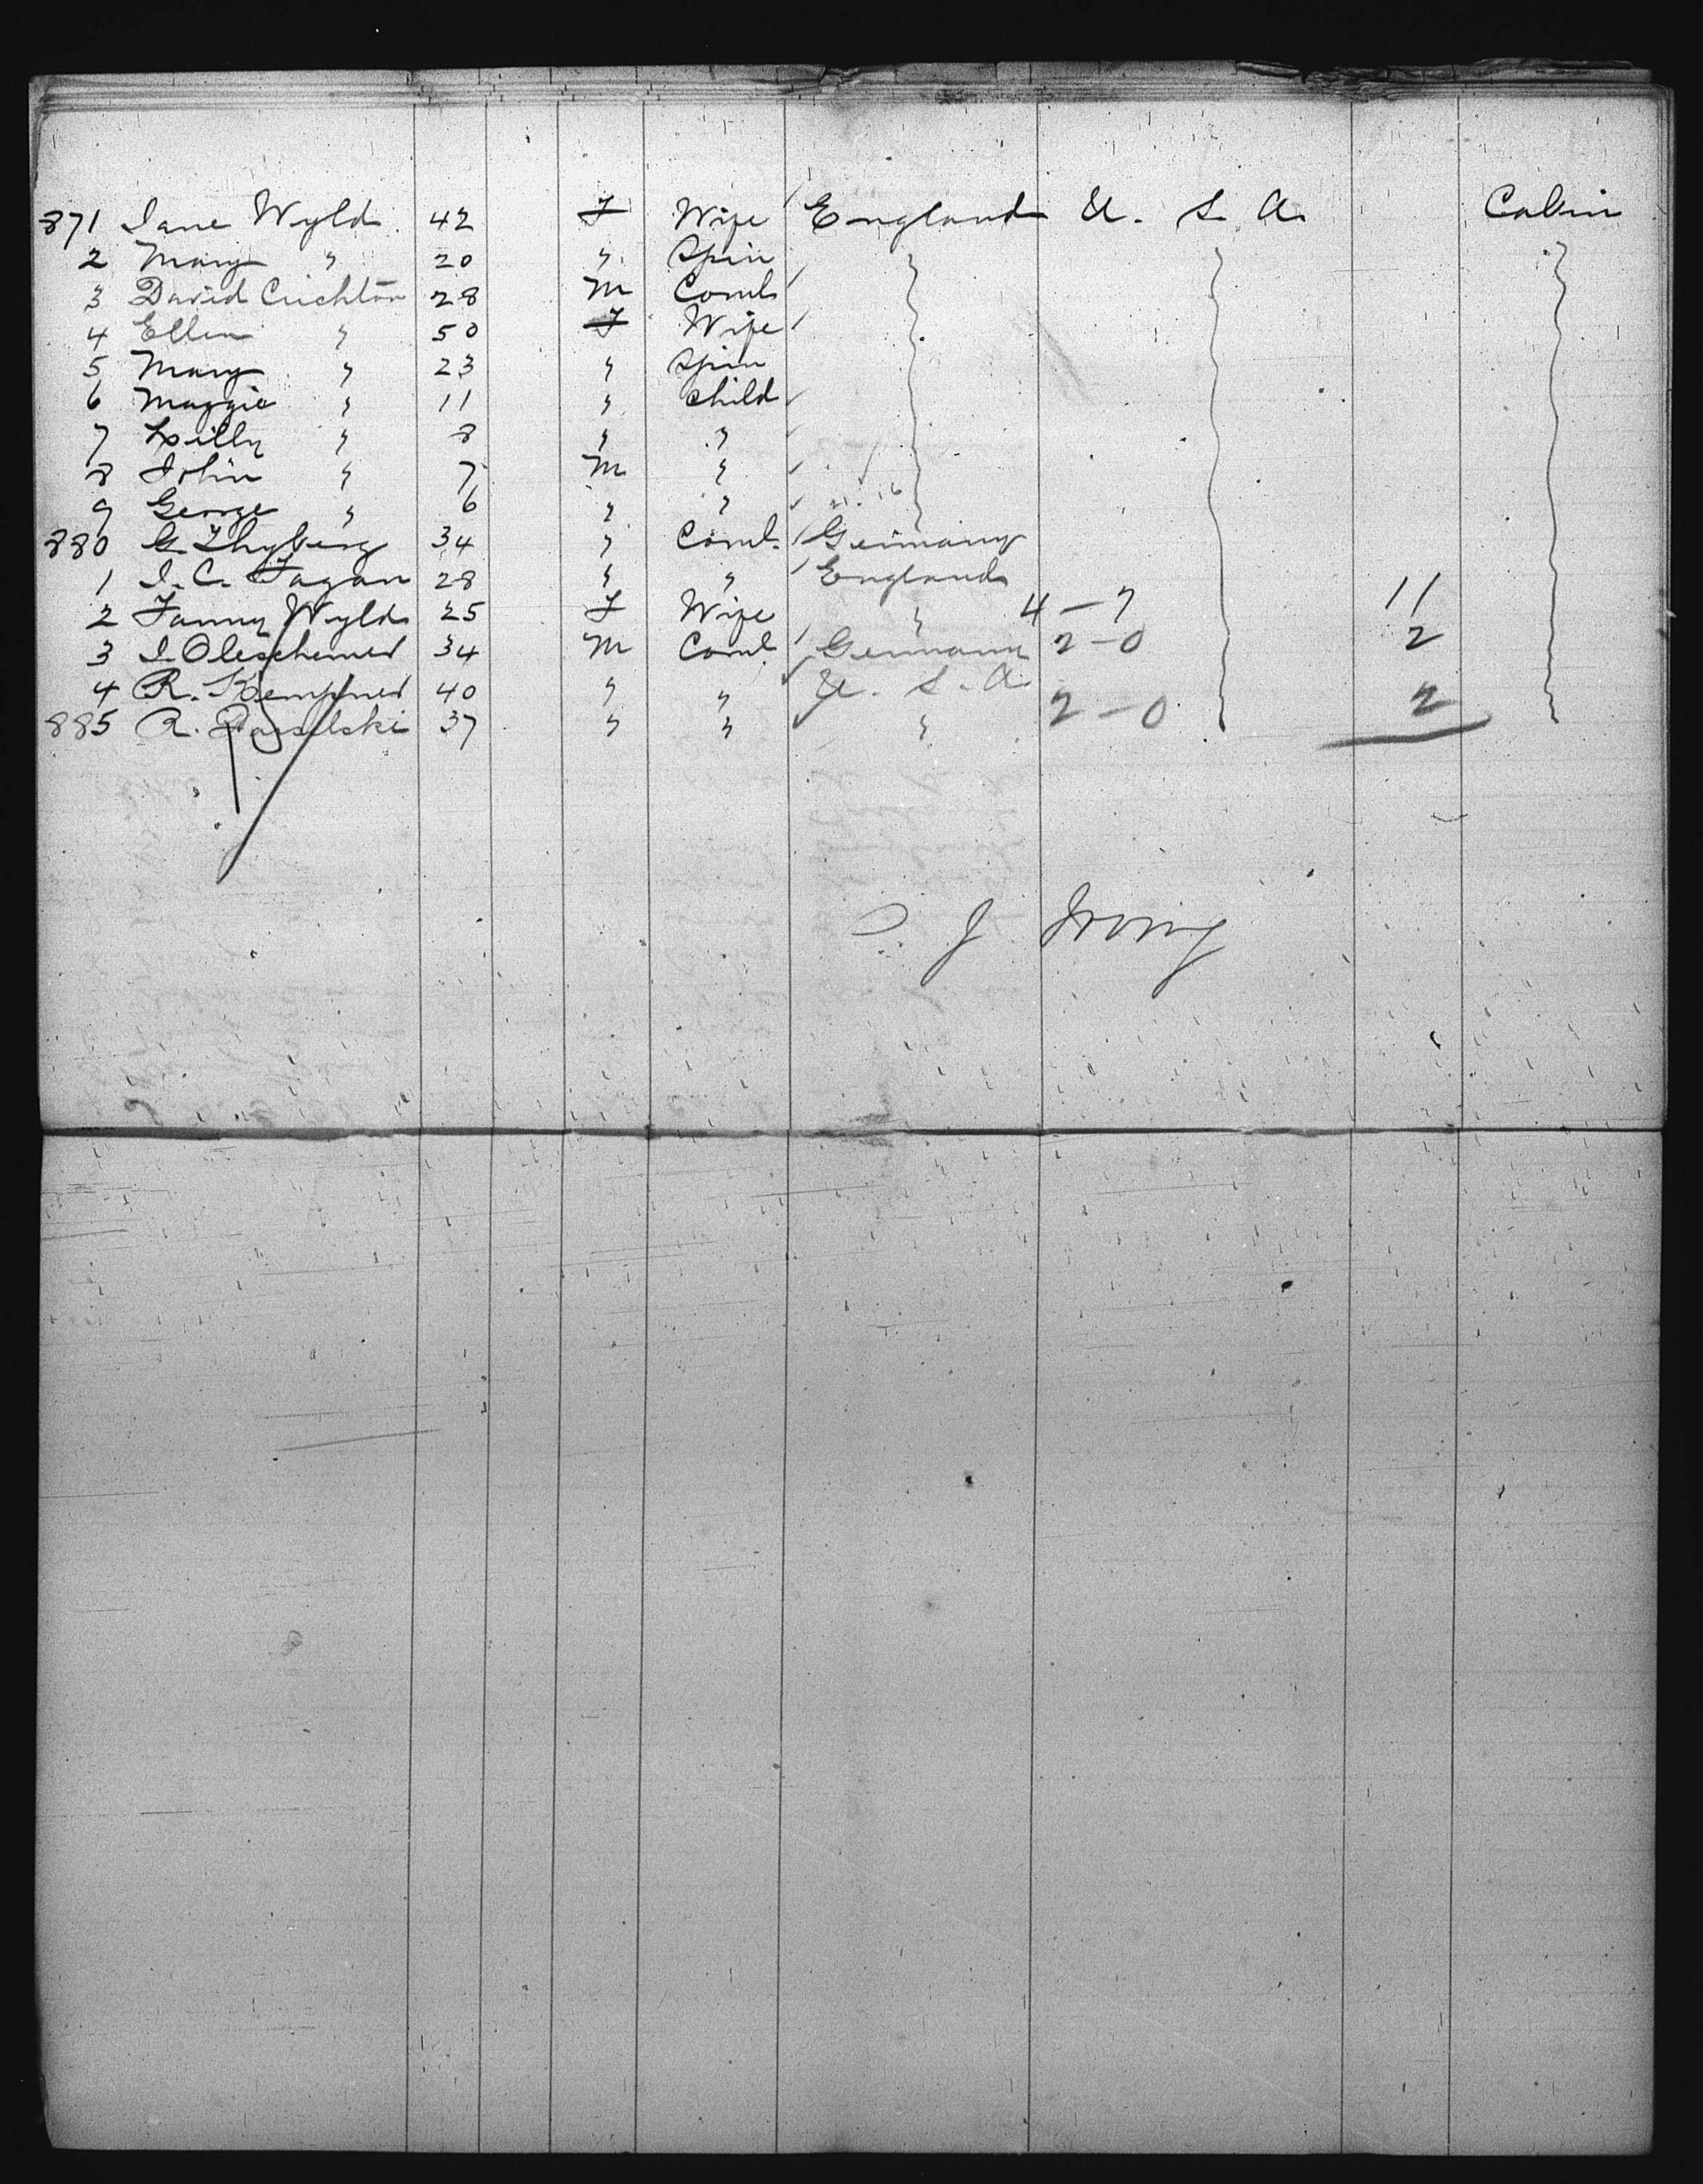 871 Jane Wyld 42 F Wife England U. S. A. Cabin
2 Mary " 20 " Spin
3 David Crichton 28 M Coml
4 Ellen " 50 F Wife
5 Mary " 23 " Spin
6 Maggie " 11 " Child
7 Lilly " 8 " "
8 John " 7 M "
9 George " 6 " "
880 G. Thyberg 34 " Coml. Germany
1 J. C. Fagan 28 " " England
2 Fanny Wyld 25 F Wife " 4-7 11
3 J. 34 M Coml Germany 2-0 2
4 R. Kempner 40 " " U. S. A
885 R. 37 " " " 2-0 2
J Irving